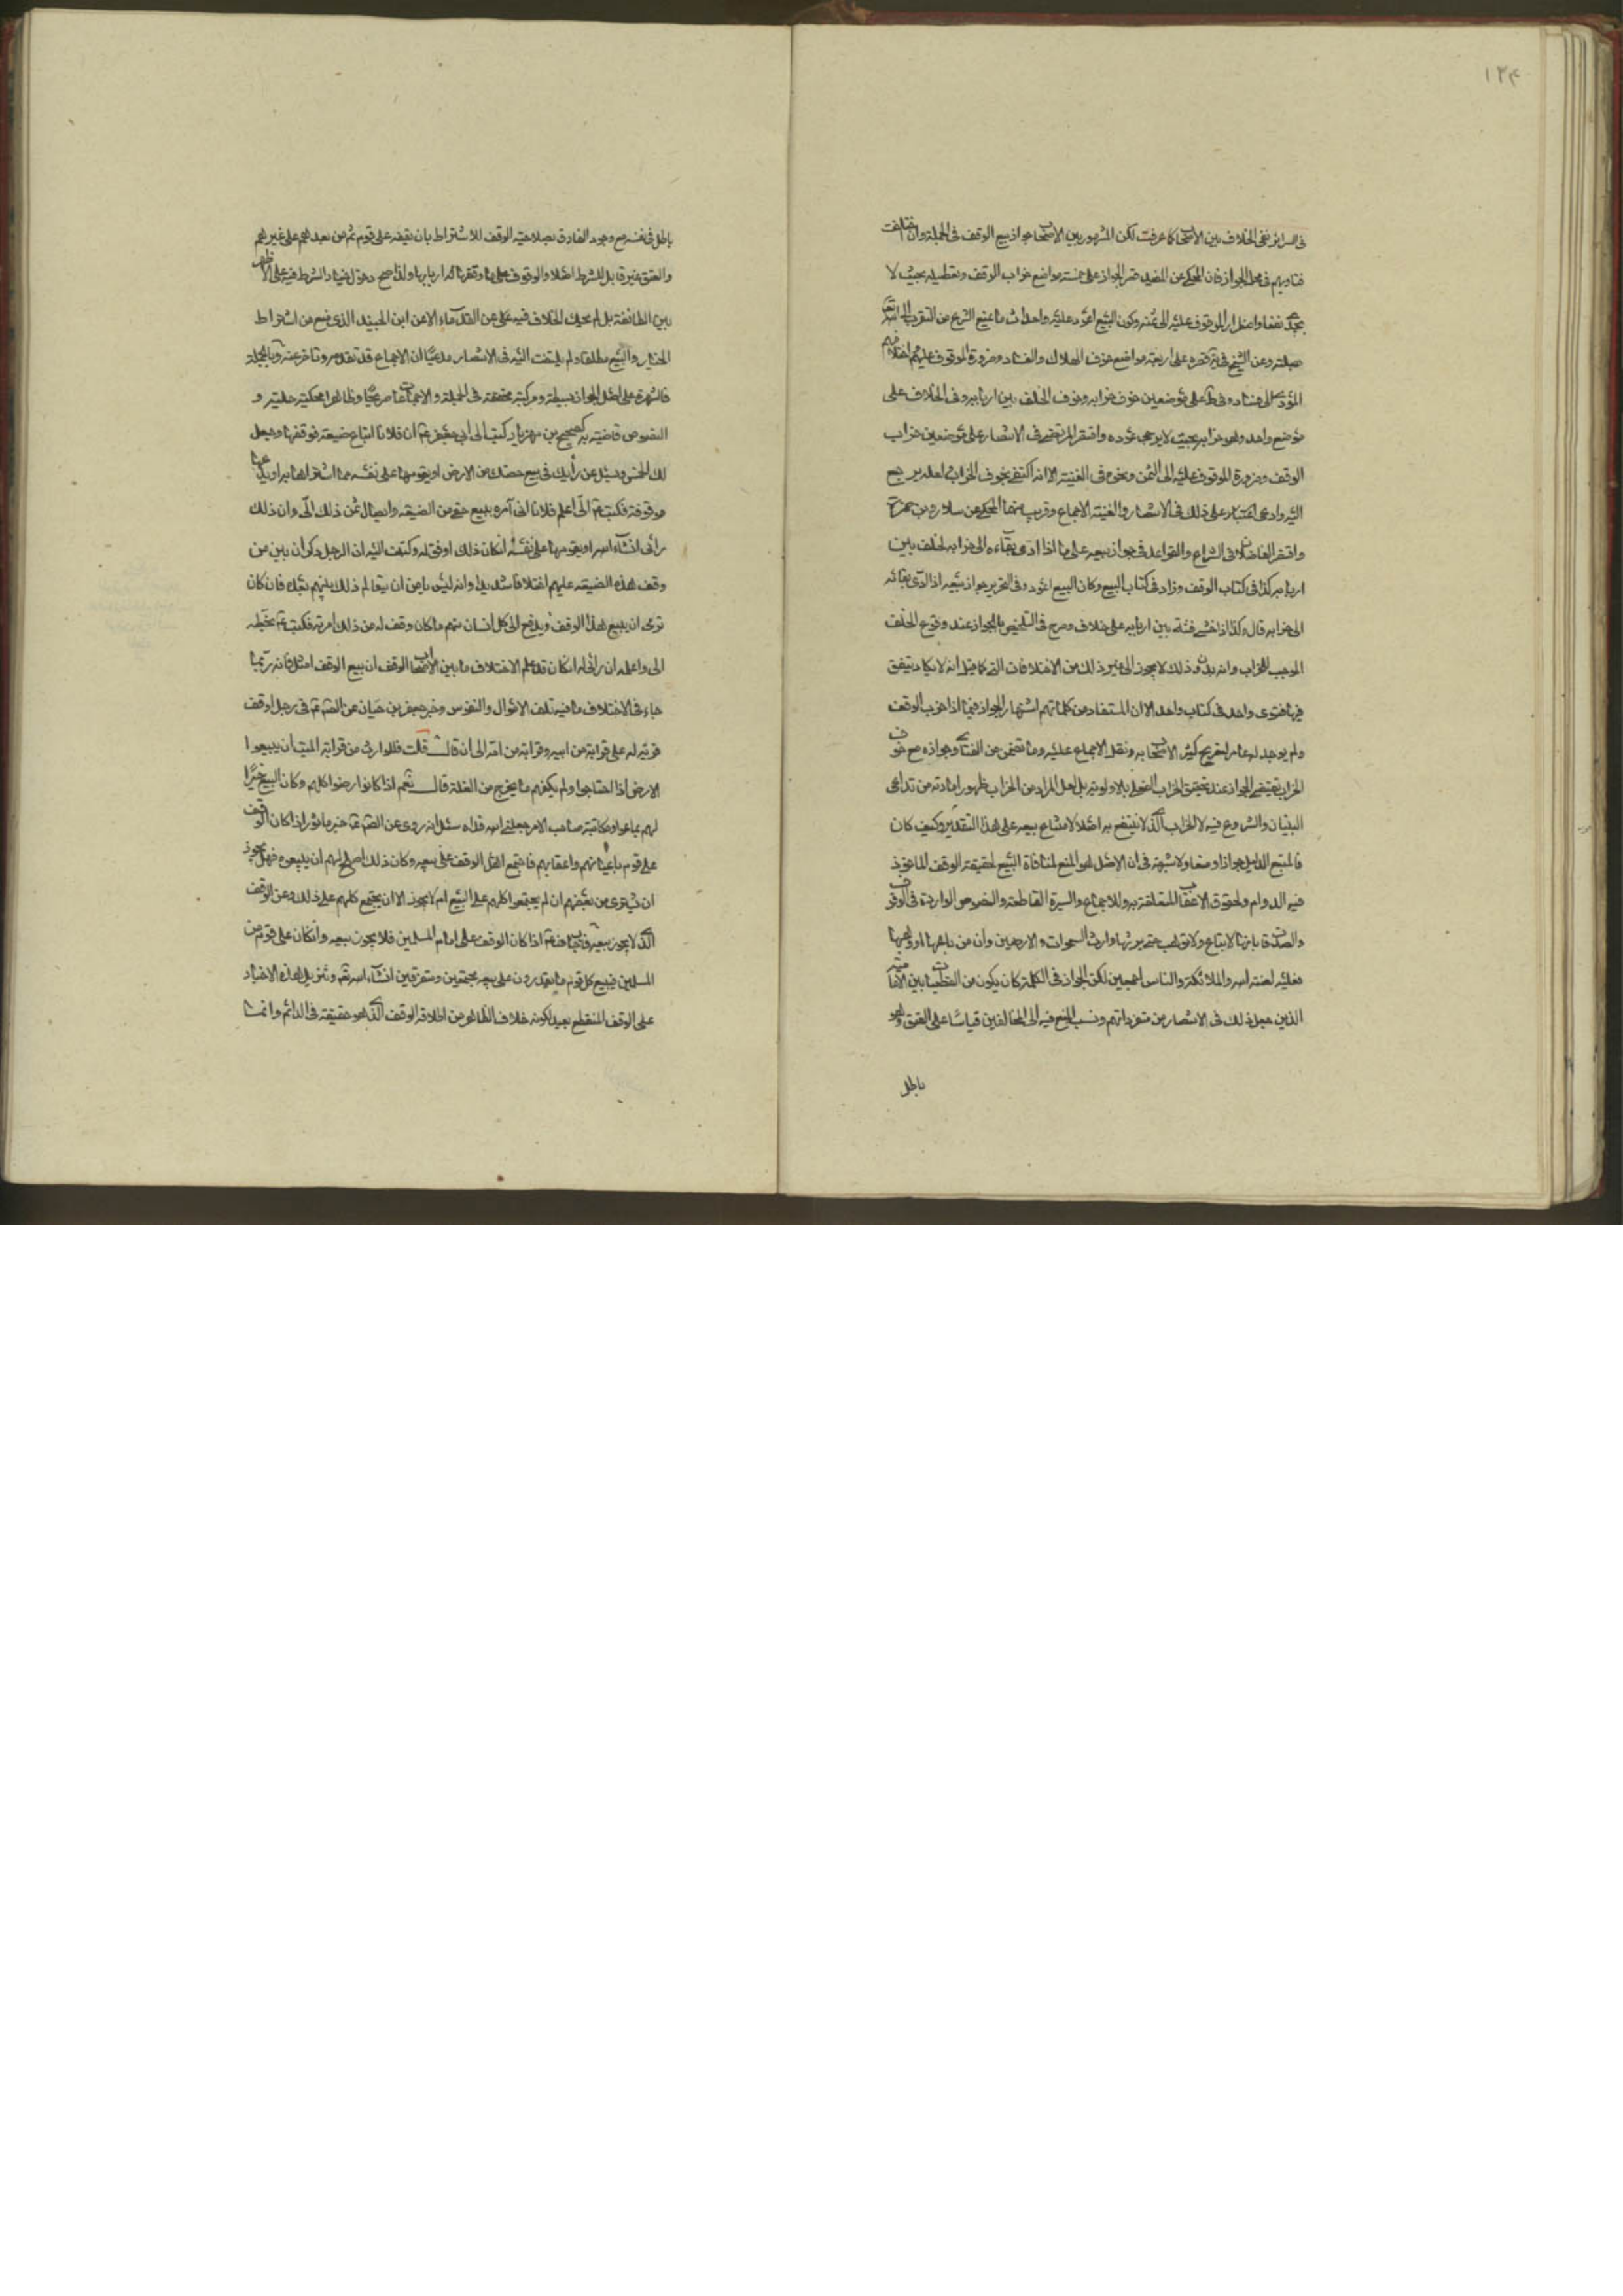 ١٢۴
فى السرائر نفى الخلاف بين الاصحاب كما عرفت لكن المشهور بين الاصحاب جواز بيع الوقف فى الجملة وان اختلفت
فتاويهم فى محل الجواز فان المحكى عن المفيد قصر الجواز على خمسة مواضع خراب الوقف وتعطيله بحيث لا
يجدى نفعا واضطرار الموقوف عليه الى ثمنه وكون البيع اعود عليه واحداث ما يمنع الشرع من التقرب الى الله تعالى
صلته وعن الشيخ فى قصره على اربعة مواضع خوف الهلاك والفساد وضرورة الموقوف عليهم اختلافهم
المؤدى الى فساده وفى ط على موضعين خوف خرابه وخوف الخلف بين اربابه وفى الخلاف على
موضع واحد وهو خرابه بحيث لا يرجى عوده واقتصر المرتضى فى الانتصار على موضعين خراب
الوقف وضرورة الموقوف عليه الى الثمن ونحوه فى الغنية الا انه اكتفى بخوف الخراب
اليه وادعى على ذلك فى الانتصار والغنية الاجماع وقريب منهما المحكى عن سلار وبن حمزة
واقتصر الفاضلان فى الشرايع والقواعد فى جواز بيعه على ما اذا ادى بقاءه الى خرابه لخلف بين
اربابه كذا فى كتاب الوقف وزاد فى كتاب البيع وكان البيع اعود وفى التحرير جواز بيعه اذا ادى بقائه
الى خرابه قال وكذا اذا خشى فتنة بين اربابه على خلاف وصرح فى التلخيص بالجواز عند وقوع الخلف
الموجب للخراب وانه بدون ذلك لا يجوز الى غير ذلك من الاختلافات التى كما قيل انه لا يكاد يتفق
فيها فتوى واحد فى كتاب واحد الا ان المستفاد من كلماتهم اشتهار الجواز فيما اذا خرب الوقف
ولم يوجد له عامر لتصريح كثير الاصحاب به ونقل الاجماع عليه وما تضمن من الفتاوى جوازه مع خوف
الخراب يقتضى الجواز عند تحقق الخراب الفعلى بالاولوية بل لعل المراد من الخراب ظهور امارته من تداعى
البنيان والشروع فيه لا الخراب الذى لا ينتفع به اصلا لامتناع بيعه على هذا التقدير وكيف كان
فالمتبع الدليل جوازا ومنعا ولا شبهة فى ان الاصل هو المنع لمنافاة البيع لحقيقة الوقف الماخوذ
فيه الدوام ولحقوق الاعقاب المتعلقة به وللاجماع والسيرة القاطعة والنصوص الواردة فى الوقوف
والصدقات بانها لا تباع ولا توهب حتى يرثها وارث السموات والارضين وان من باعها او وهبها
فعليه لعنة الله والملائكة والناس اجمعين لكن الجواز فى الكلية كان يكون من القطعيات بين الامامية
الذين جعل ذلك فى الانتصار من متفرداتهم ونسب المنع فيه الى المخالفين قياسا على العتق وهو
باطل
باطل فى نفسه مع وجود الفارق بصلاحية الوقف للاشتراط بان يقفه على قوم ثم من بعدهم على غيرهم
والعتق غير قابل للشرط اصلا والوقوف على ما وقفها اربابها ولذا صح دخول خيار الشرط فيه على الاظهر
بين الطائفة بل لم يحك الخلاف فيه على عن القدماء الا عن ابن الجنيد الذى منع من اشتراط
الخيار والبيع مطلقا ولم يلتفت اليه فى الانتصار مدعيا ان الاجماع قد تقدمه وتاخر عنه وبالجملة
فالشهرة على اصل الجواز بسيطة ومركبة محققة فى الجملة والاجماعات صريحا وظاهرا محكية عليه و
النصوص قاضية به كصحيح بن مهزيار كتبت الى ابى جعفر ع ان فلانا ابتاع ضيعة فوقفها وجعل
لك الخمس ويسئل عن رأيك فى بيع حصتك من الارض او يقومها على نفسه بما اشتراها به او يدعها
موقوفة فكتب ع الىّ اعلم فلانا انى آمره ببيع حقى من الضيعة وايصال ثمن ذلك الىّ وان ذلك
رأيى انشاء الله او يقومها على نفسه انكان ذلك اوفق له وكتبت اليه ان الرجل ذكر ان بين من
وقف هذه الضيعة عليهم اختلافا شديدا وانه ليس يامن ان يتفاقم ذلك بينهم بعده فان كان
ترى ان يبيع هذا الوقف ويدفع الى كل انسان منهم ما كان وقف له من ذلك امرته فكتب ع بخطه
الى واعلمه ان رائى له انكان قد علم الاختلاف ما بين الاصحاب الوقف ان بيع الوقف امثل فانه ربما
جاء فى الاختلاف ما فيه تلف الاموال والنفوس وخبر جعفر بن حيان عن الصم ع فى رجل وقف
قرية له على قرابته من ابيه وقرابته من امه الى ان قال قلت فللوارث من قرابة الميت ان يبيعوا
الارض اذا احتاجوا ولم يكفهم ما يخرج من الغلة قال نعم اذا كانوا رضوا كلهم وكان البيع خيرا
لهم باعوا ومكاتبة صاحب الامر جعلنى الله فداه سئل انه روى عن الصم ع خبر ماثور اذا كان الوقف
على قوم باعيانهم واعقابهم فاجتمع اهل الوقف على بيعه وكان ذلك اصلح لهم ان يبيعوه فهل يجوز
ان يشترى من بعضهم ان لم يجتمعوا كلهم على البيع ام لا يجوز الا ان يجتمع كلهم على ذلك وعن الوقف
الذى لا يجوز بيعه فاجاب ع اذا كان الوقف على امام المسلمين فلا يجوز بيعه وانكان على قوم من
المسلمين فيبيع كل قوم ما يقدرون على بيعه مجتمعين ومتفرقين انشاء الله تعم وتنزيل هذه الاخبار
على الوقف المنقطع بعيد لكونه خلاف الظاهر من اطلاق الوقف الذى هو حقيقة فى الدائم وانما